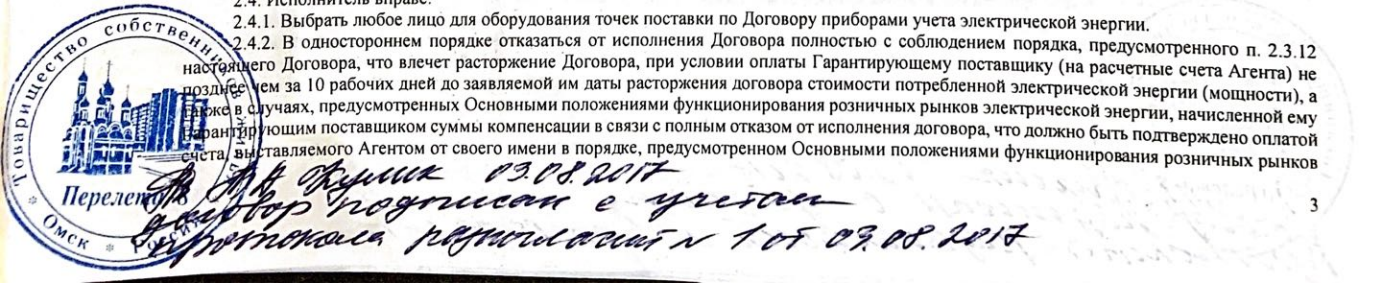 2.4. Исполнитель вправе:
2.4.1. Выбрать любое лицо для оборудования точек поставки по Договору приборами учета электрической энергии.
2.4.2. В одностороннем порядке отказаться от исполнения Договора полностью с соблюдением порядка, предусмотренного п. 2.3.12
настоящего Договора, что влечет расторжение Договора, при условии оплаты Гарантирующему поставщику (на расчетные счета Агента) не
позднее чем за 10 рабочих дней до заявляемой им даты расторжения договора стоимости потребленной электрической энергии (мощности), а
также в случаях, предусмотренных Основными положениями функционирования розничных рынков электрической энергии, начисленной ему
гарантирующим поставщиком суммы компенсации в связи с полным отказом от исполнения договора, что должно быть подтверждено оплатой
счета, выставляемого Агентом от своего имени в порядке, предусмотренном Основными положениями функционирования розничных рынков
3
Товарищество собственников
Омск * Россия
03.08.2017
договор подписан с учетом
протокола разногласий № 1 от 03.08.2017